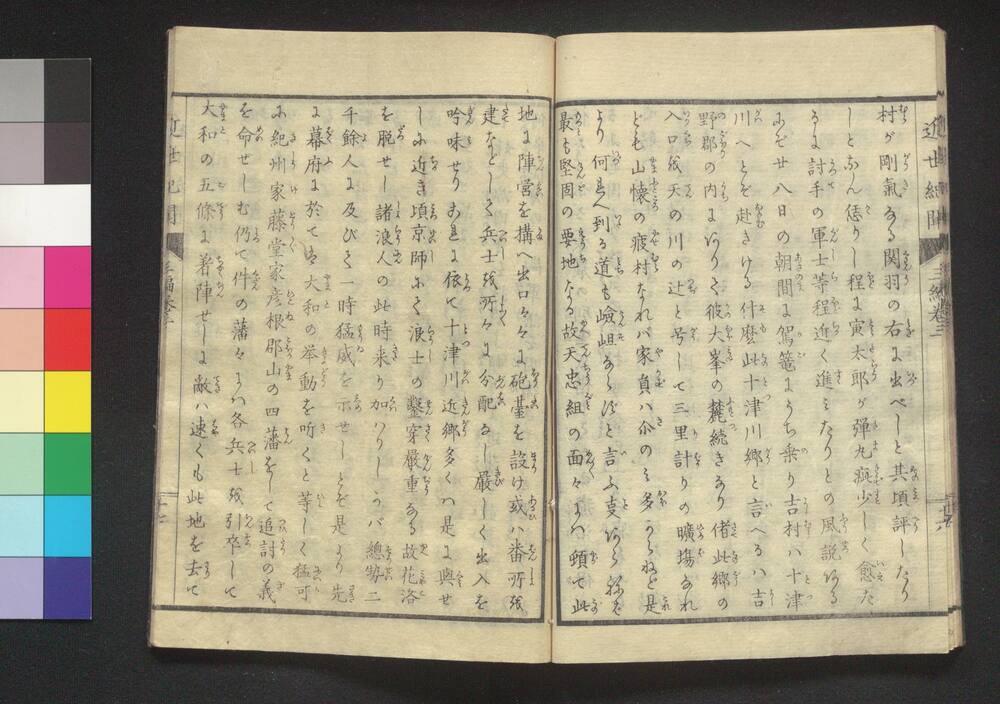 近世紀聞 三編巻三
村が剛氣なる関羽の右に出べしと其頃評したり
しとなん恁りし程に寅太郎が弾丸痍少しく愈た
るに討手の軍士等程近く進ミたりとの風説ある
にぞ廿八日の朝間に駕篭にうち乗り吉村ハ十津
川へとぞ赴きける什麼此十津川郷と言へるハ吉
野郡の内にありて彼大峯の麓続きなり偖此郷の
入口を天の川の辻と号して三里計りの曠塲なれ
ども山懐の疲村なれバ家員ハ尒のミ多からねど是
より何里へ到る道も嶮岨ならずと言ふ支あらねば
最も堅固の要地なる故天忠組の面々にハ頓て此
地に陣営を搆へ出口々々に砲臺を設け或ハ番所を
建などして兵士を所々に分配なし厳しく出入を
吟味せり是に依て十津川近郷多くハ是に與せ
しに近き頃京師にて浪士の鑿穿嚴重なる故花洛
を脱せし諸浪人の此時来り加ハりしかバ總勢二
千餘人に及びて一時猛威を示せしとぞ是より先
に幕府に於てハ大和の挙動を听くと等しく猛可
に紀州家藤堂家彦根郡山の四藩をして追討の義
を命ぜしむ仍て件の藩々にハ各兵士を引卒して
大和の五條に着陣せしに敵ハ速くも此地を去て
近世紀聞 三編巻三